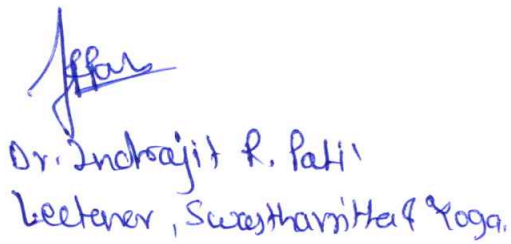 Dr. Indrajit R. Patil
Lecturer, Swasthavritta & Yoga.